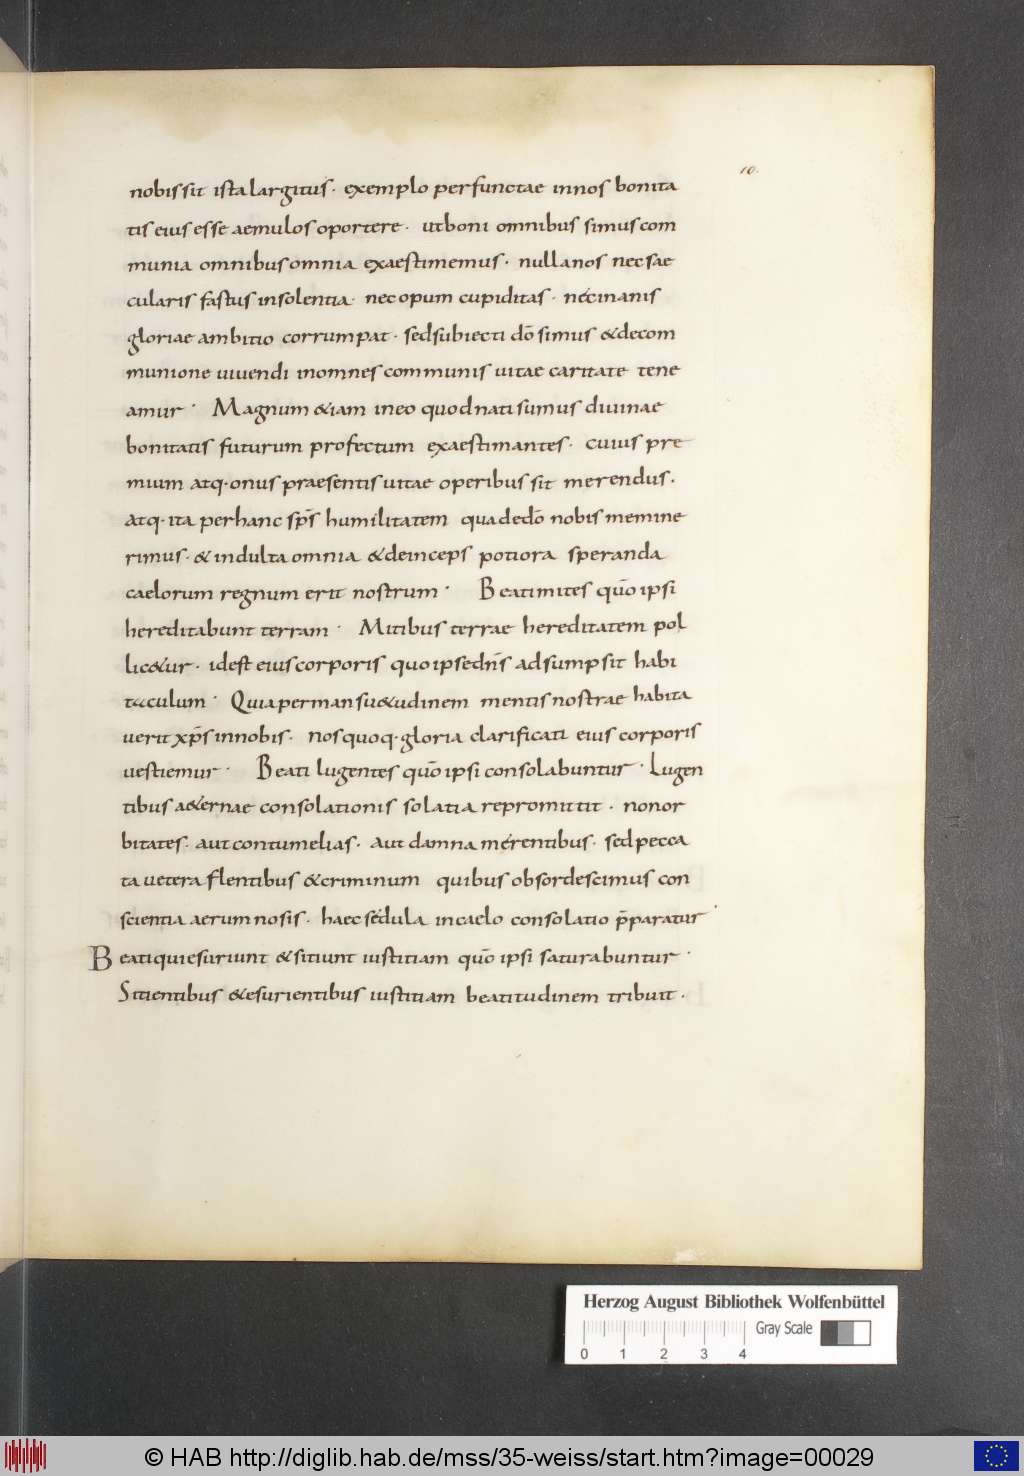 10.
nobis sit ista largitus· exemplo perfunctae in nos bonita
tis eius esse aemulos oportere· ut boni omnibus simus com
munia omnibus omnia exaestimemus· nulla nos nec sae
cularis fastus insolentia· nec opum cupiditas· nec inanis
gloriae ambitio corrumpat· sed subiecti do̅ simus & decom
munione uiuendi in omnes communis uitae caritate tene
amur· Magnum &iam in eo quod nati sumus diuinae
bonitatis futurum profectum exaestimantes· cuius prę
mium atq· onus praesentis uitae operibus sit merendus·
atq· ita per hanc sp̅s humilitatem qua de do̅ nobis memine
rimus· & indulta omnia & deinceps potiora speranda
caelorum regnum erit nostrum· Beati mites quo̅ ipsi
hereditabunt terram· Mitibus terrae hereditatem pol
lic&ur· id est eius corporis quo ipse dn̅s adsumpsit habi
taculum· Quia per mansu&udinem mentis nostrae habita
uerit xp̅s in nobis· nos quoq· gloria clarificati eius corporis
uestiemur· Beati lugentes quo̅ ipsi consolabuntur· Lugen
tibus a&ernae consolationis solatia repromittit· non or
bitates· aut contumelias· aut damna merentibus· sed pecca
ta uetera flentibus & criminum quibus obsordescimus con
scientia aerumnosis· haec sedula in caelo consolatio p̅paratur·
Beati qui esuriunt & sitiunt iustitiam quo̅ ipsi saturabuntur·
Sitientibus & esurientibus iustitiam beatitudinem tribuit·
Herzog August Bibliothek Wolfenbüttel
Gray Scale
0 1 2 3 4
© HAB http://diglib.hab.de/mss/35-weiss/start.htm?image=00029